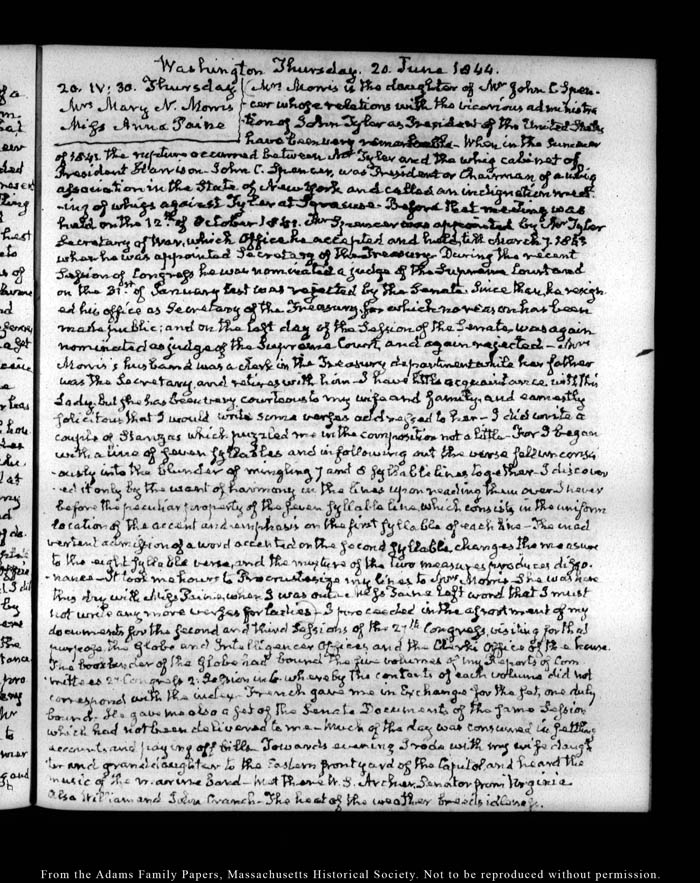 Washington Thursday. 20. June 1844.
20. IV: 30. Thursday
Mrs Mary N. Morris
Miss Anna Paine
Mrs Morris is the daughter of Mr John C. Spen-
cer whose relations with the vicarious administra
tion of John Tyler as President of the United States
have been very remarkable. When in the summer
of 1841. the rupture occurred between Mr Tyler and the whig cabinet of
President Harrison. John C. Spencer, was President or Chairman of a whig
association in the State of New York and called an indignation meet-
ing of whigs against Tyler at Syracuse. Before that meeting was
held on the 12th of October 1841. Mr Spencer was appointed by Mr Tyler
Secretary of War, which Office he accepted and held, till March 7. 1843
when he was appointed Secretary of the Treasury. During the recent
Session of Congress he was nominated a judge of the Supreme Court and
on the 31st of January last was rejected by the Senate. Since then, he resign
ed his office as Secretary of the Treasury, for which no reason has been
made public; and on the last day of the Session of the Senate, was again
nominated as judge of the Supreme Court, and again rejected. Mrs
Morris's husband was a clerk in the Treasury department while her father
was the Secretary, and retires with him. I have little acquaintance with this
Lady. But she has been very courteous to my wife and family, and earnestly
solicitous that I would write some verses addressed to her. I did write a
couple of Stanzas which puzzled me in the composition not a little. For I began
with a line of seven syllables and in following out the verse fell unconsci
ously into the blunder of mingling 7 and 8 syllable lines together. I discover
ed it only by the want of harmony in the lines upon reading them over. I never
before the peculiar property of the seven syllable line, which consists in the uniform
location of the accent and emphasis on the first syllable of each line. The inad
vertent admission of a word accented on the second syllable, changes the measure
to the eight syllable verse, and the mixture of the two measures produces disso
nance. It took me hours to Procrustesize my lines to Mrs Morris. She was here
this day with Miss Paine, when I was out. Miss Paine left word that I must
not write any more verses for ladies. I proceeded in the assortment of my
documents for the second and third Sessions of the 27th Congress, visiting for that
purpose the Globe and Intelligencer Offices, and the Clerk's Office of the house.
The bookbinder of the Globe had bound the five volumes of my Reports of Com
mittees 27 Congress 2. Session in 6. whereby the contents of each volume did not
correspond with the index. French gave me in Exchange for the set, one duly
bound. He gave me also a set of the Senate Documents of the same Session
which had not been delivered to me. Much of the day was consumed in settling
accounts and paying off bills. Towards evening I rode with my wife daugh
ter and grand daughter to the Eastern front yard of the Capitol and heard the
music of the marine Band. Met there W. S. Archer, Senator from Virginia
also William and John Cranch. The heat of the weather breeds idleness.
From the Adams Family Papers, Massachusetts Historical Society. Not to be reproduced without permission.